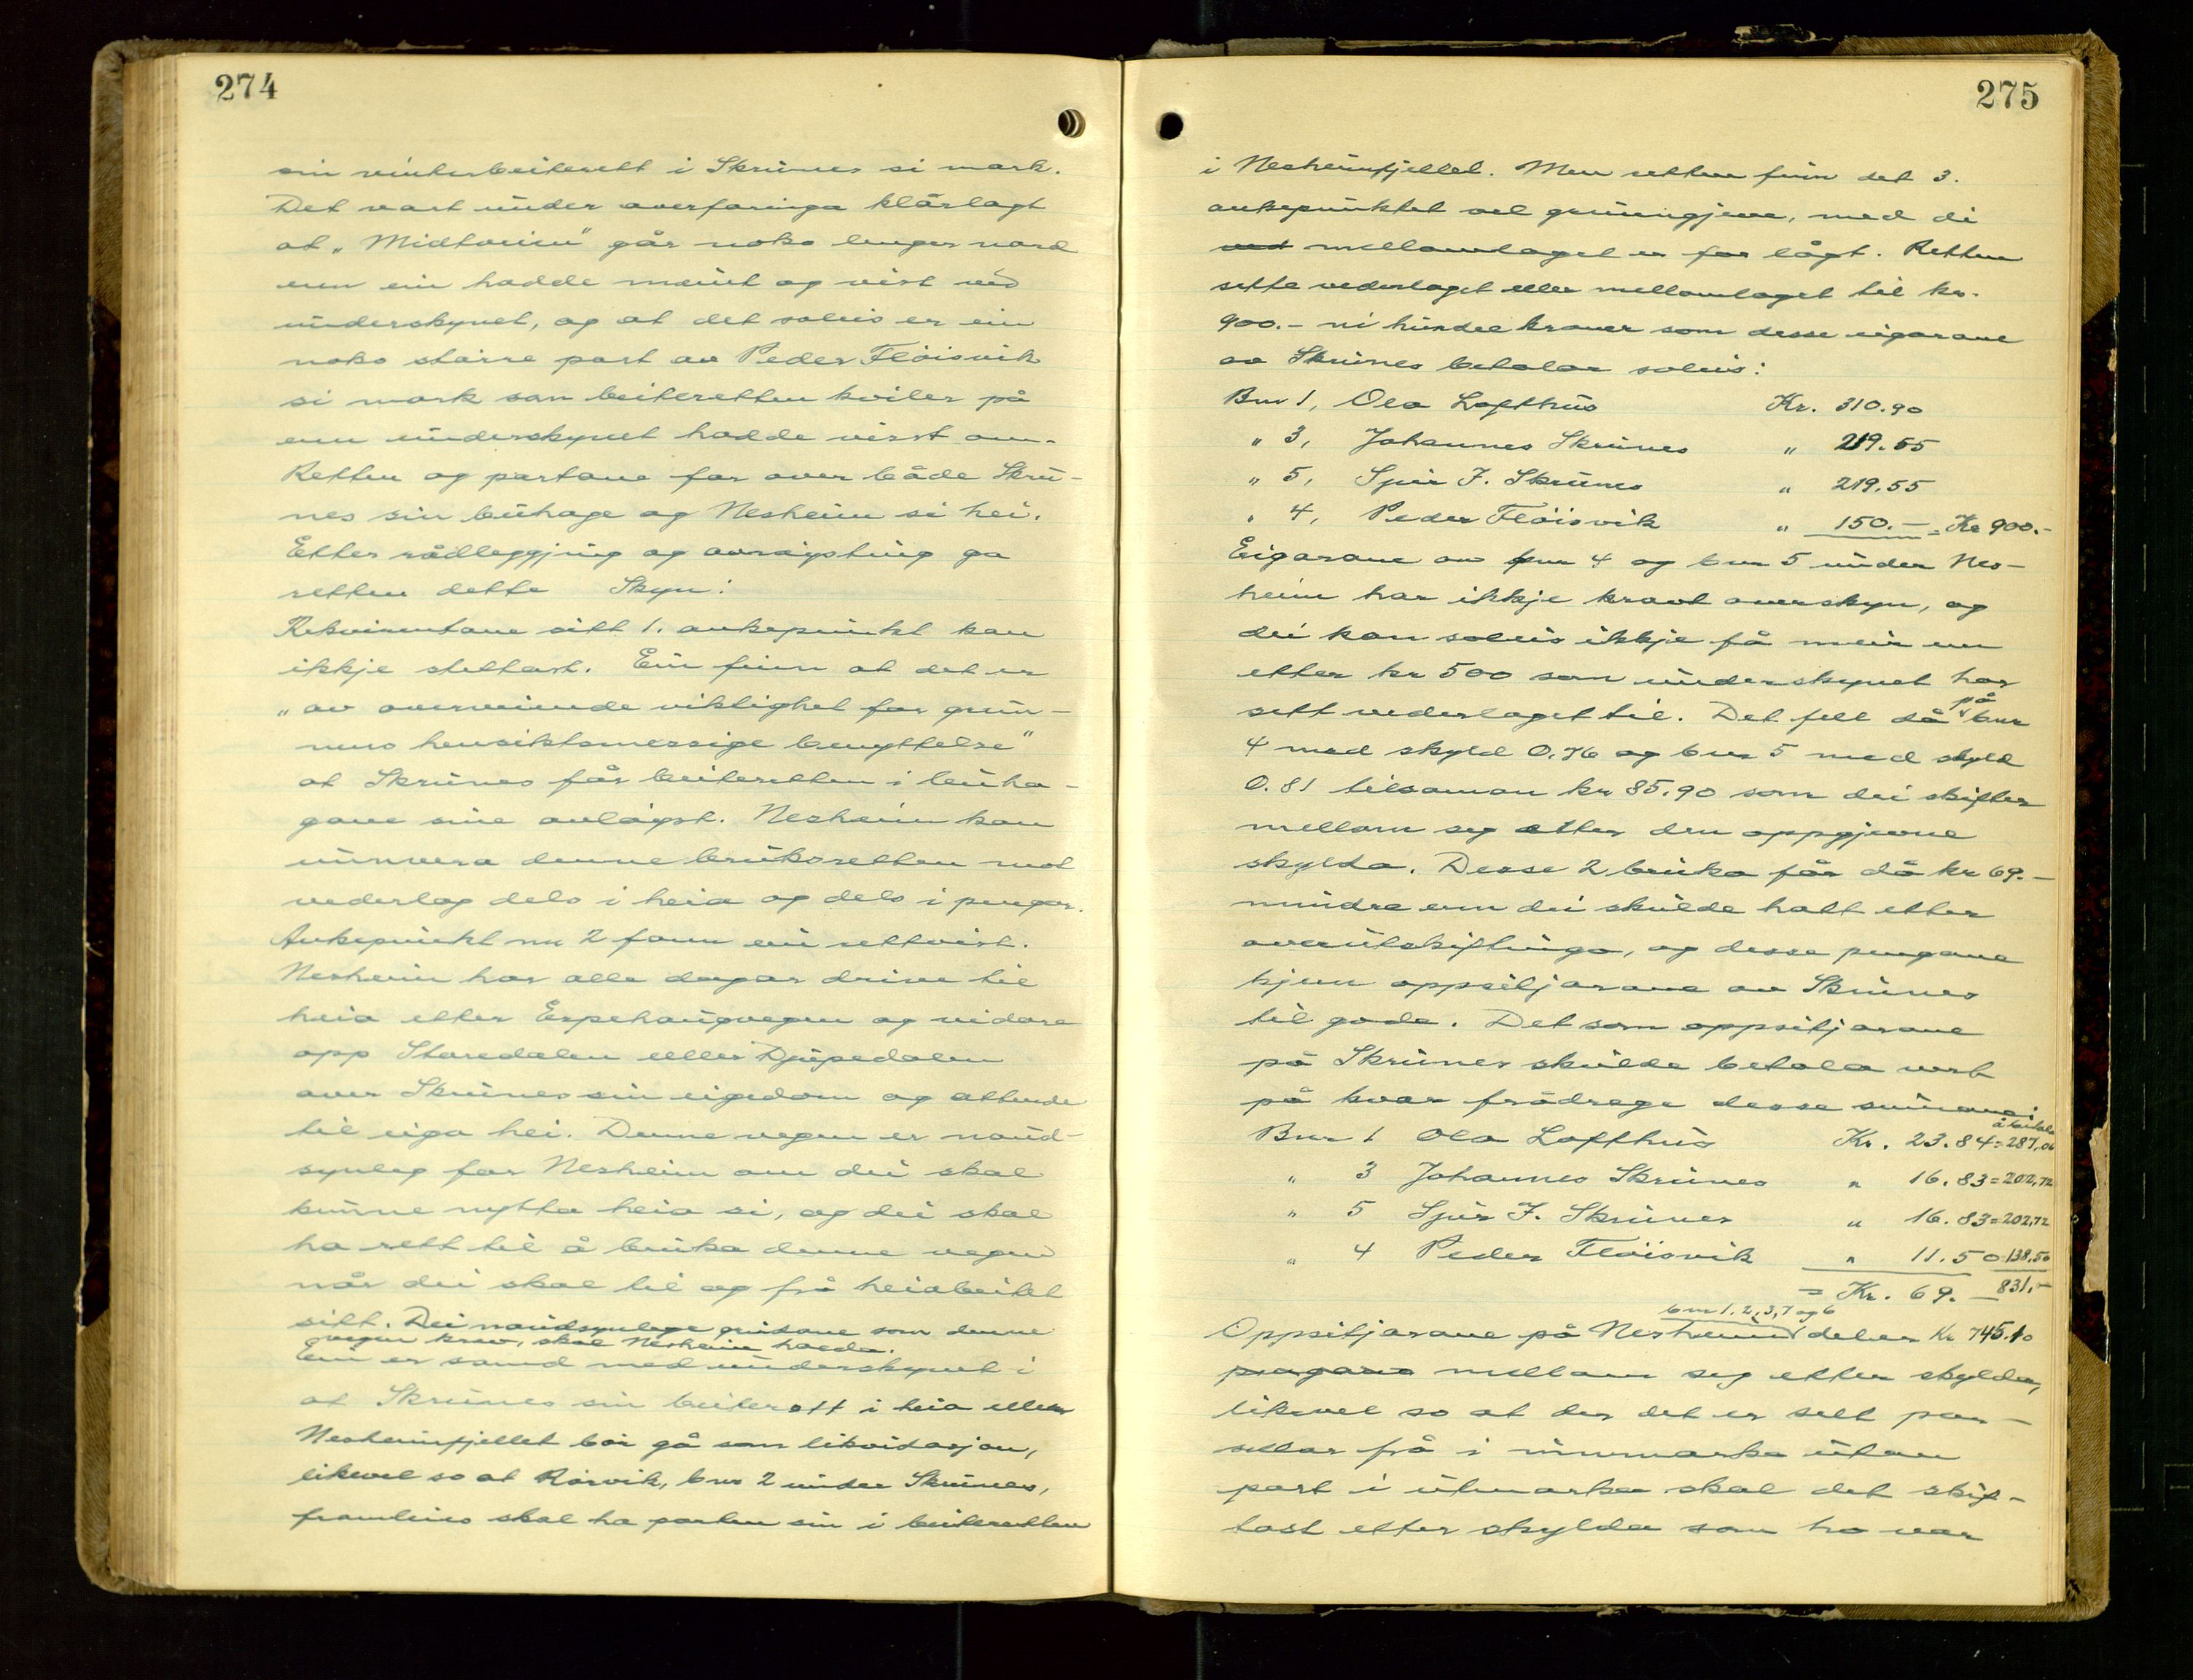 274
sin vinterbeiterett i Skrunes si mark.
Det vart under overfaringa klårlagt
at „Midtveien" går noko lenger nord
enn ein hadde meint og vist ved
underskynet, og at det soleis er ein
noko større part av Peder Fløisvik
si mark som beiteretten kviler på
enn underskynet hadde visst om.
Retten og partane for over både Skru-
nes sin buhage og Nesheim si hei.
Etter rådleggjing og avrøysting ga
retten dette Skyn:
Rekvirentane sitt 1. ankepunkt kan
ikkje stettast. Ein finn at det er
„av overveiende viktighet for grun-
nens hensiktsmessige benyttelse"
at Skrunes får beiteretten i buha-
gane sine avløyst. Nesheim kan
unnvera denne bruksretten mot
vederlag dels i heia og dels i pengar.
Ankepunkt nr 2 fann ein rettvist.
Nesheim har alle dagar drive til
heia etter Erpehaugvegen og vidare
opp Storedalen eller Djupedalen
over Skrunes sin eigedom og attende
til eiga hei. Denne vegen er naud-
synleg for Nesheim om dei skal
kunne nytta heia si, og dei skal
ha rett til å bruka denne vegen
når dei skal til og frå heiabeitet
sitt. Dei naudsynlege grindane som denne
vegen krev, skal Nesheim halda.
Ein er samd med underskynet i
at Skrunes sin beiterett i heia eller
Nesheimfjellet bør gå som likvidasjon,
likevel so at Rørvik, bnr 2 under Skrunes,
framleies skal ha parten sin i beiteretten
275
i Nesheimfjellet. Men retten finn det 3.
ankepunktet vel grunngjeve, med di
ved mellomlaget er for lågt. Retten
sette vederlaget eller mellomlaget til kr.
900.- ni hundre kroner som desse eigarane
av Skrunes betalar soleis:
Bnr 1, Ola Lofthus Kr. 310.90
" 3, Johannes Skrunes " 219.55
" 5, Sjur J. Skrunes " 219.55
" 4, Peder Fløisvik " 150.- = Kr 900.-
Eigarane av bnr 4 og bnr 5 under Nes-
heim har ikkje kravt overskyn, og
dei kan soleis ikkje få meir enn
etter kr 500 som underskynet har
sett vederlaget til. Det fell då på bnr
4 med skyld 0.76 og bnr 5 med skyld
0.81 tilsaman kr 85.90 som dei skifter
mellom seg etter den oppgjevne
skylda. Desse 2 bruka får då kr 69.-
mindre enn dei skulde hatt etter
overutskiftinga, og desse pengane
kjem oppsitjarane av Skrunes
til gode. Det som oppsitjarane
på Skrunes skulde betala vert
på kvar frådrege desse sumane:
å betala
Bnr 1 Ola Lofthus Kr. 23.84 = 287,06
" 3 Johannes Skrunes " 16.83 = 202,72
" 5 Sjur J. Skrunes " 16.83 = 202,72
" 4 Peder Fløisvik " 11.50 138,50
= Kr. 69. - 831,-
bnr 1, 2, 3, 7 og 6
Oppsitjarane på Nesheim deler Kr 745.10
pengane mellom seg etter skylda,
likevel so at der det er selt par-
sellar frå i innmarka utan
part i utmarka skal det skif-
tast etter skylda som ho var